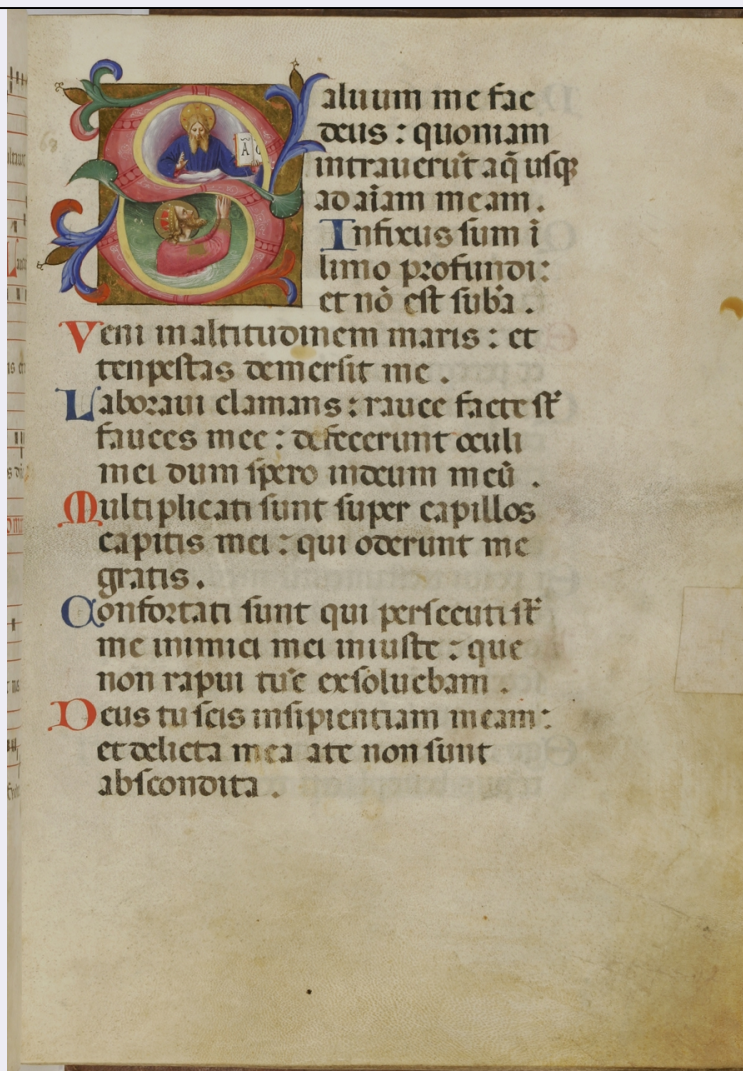 Saluum me fac
deus : quoniam
intrauerūt aq̄ usq̄
ad aīam meam .
Infixus sum ī
limo profundi :
et nō est suba .
Veni in altitudinem maris : et
tenpestas demersit me .
Laboraui clamans : rauce facte st̄
fauces mee : defecerunt oculi
mei dum spero in deum meū .
Multiplicati sunt super capillos
capitis mei : qui oderunt me
gratis .
Confortati sunt qui persecuti st̄
me inimici mei iniuste : que
non rapui tūc exsoluebam .
Deus tu scis insipientiam meam :
et delicta mea a te non sunt
abscondita .